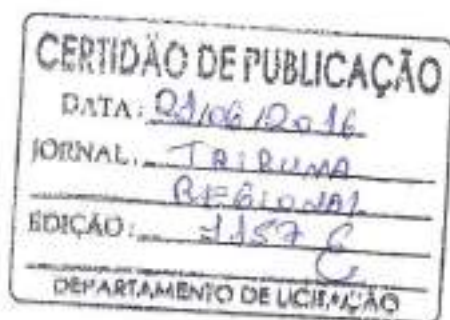 CERTIDÃO DE PUBLICAÇÃO
DATA: 21/06/2016
JORNAL: TRIBUNA
REGIONAL
EDIÇÃO: 1157
DEPARTAMENTO DE LICITAÇÃO